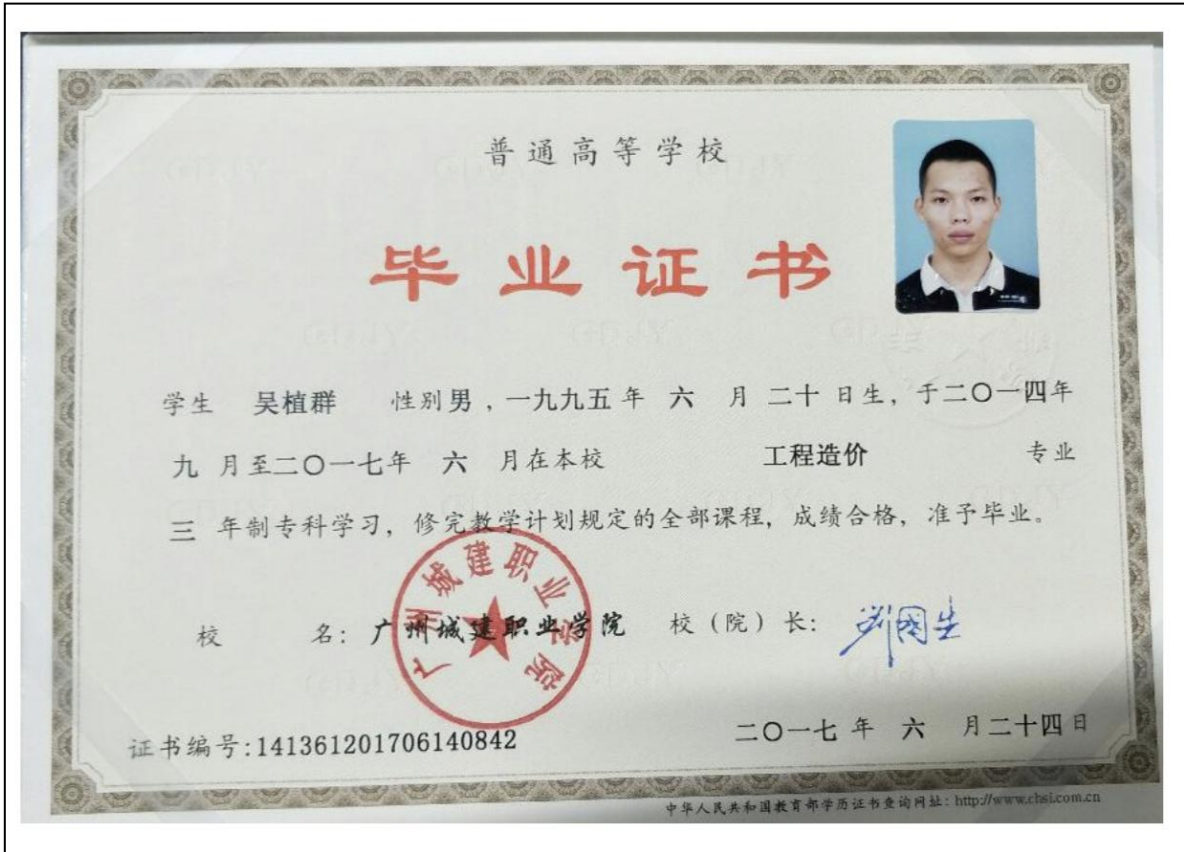 普通高等学校
毕业证书
学生 吴植群 性别男，一九九五年 六 月 二十 日生，于二〇一四年
九 月至二〇一七年 六 月在本校 工程造价 专业
三 年制专科学习，修完教学计划规定的全部课程，成绩合格，准予毕业。
广州城建职业学院
校 名：广州城建职业学院 校（院）长：
证书编号:141361201706140842
二〇一七 年 六 月二十四日
中华人民共和国教育部学历证书查询网址：http://www.chsi.com.cn